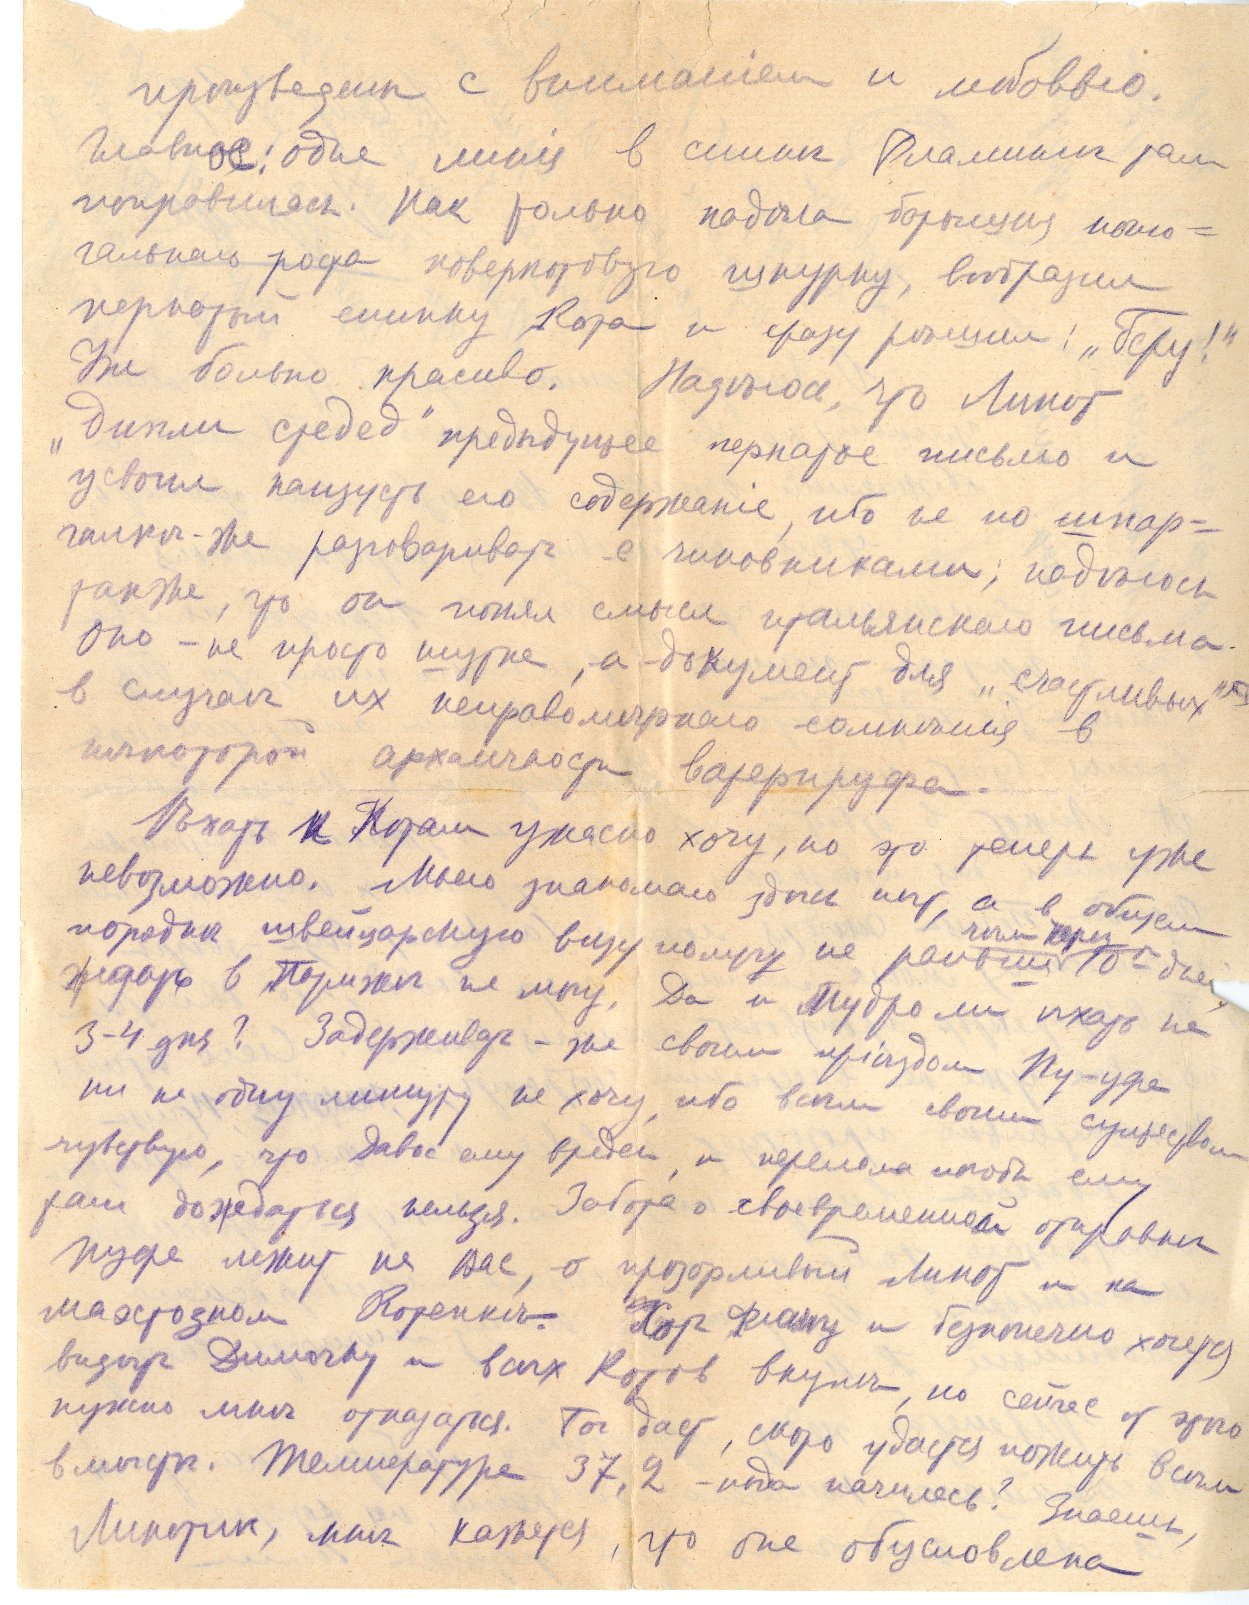 произведены с вниманіем и любовью.
Главное: одна линія в спинѣ Фламинги там
понравилась. Как только надѣла
рода коверкотовую шкурку, вообразил
пернатый спинку Кота и сразу рѣшил: „Беру!"
Уж больно красиво. Надѣюсь, что Линот
предыдущее пернатое письмо и
усвоил наизусть его содержаніе, ибо не по шпар=
галкѣ-же разговаривать с чиновниками; надѣюсь
также, что он понял смысл итальянскаго письма.
Оно – не просто шутка, а документ для „счастливых"
в случаѣ их неправомѣрнаго сомнѣнія в
нѣкоторой архаичности ватерпруфа.
Ѣхать к Котам ужасно хочу, но это теперь уже
невозможно. Моего знакомаго здѣсь нѣт, а в общем
порядкѣ швейцарскую визу получу не раньше чѣм через 10 дней,
ждать в Парижѣ не могу. Да и мудро ли ѣхать на
3-4 дня? Задерживать-же своим пріѣздом Пу-уфа
ни на одну минуту не хочу, ибо всѣм своим существом
чувствую, что Давос ему вреден, и перелома чтобы ему
там дожидаться нельзя. Забота о своевременной отправкѣ
Пуфа лежит на Вас, о прозорливый Линот и на
Котенкѣ. и безконечно хочется
видѣть Димочку и всѣх Котов вкупѣ, но сейчас от этого
нужно мнѣ отказаться. Бог даст, скоро удастся пожить всѣм
вмѣстѣ. Температура 37,2 – когда началась? Знаешь,
Линотик, мнѣ кажется, что она обусловлена